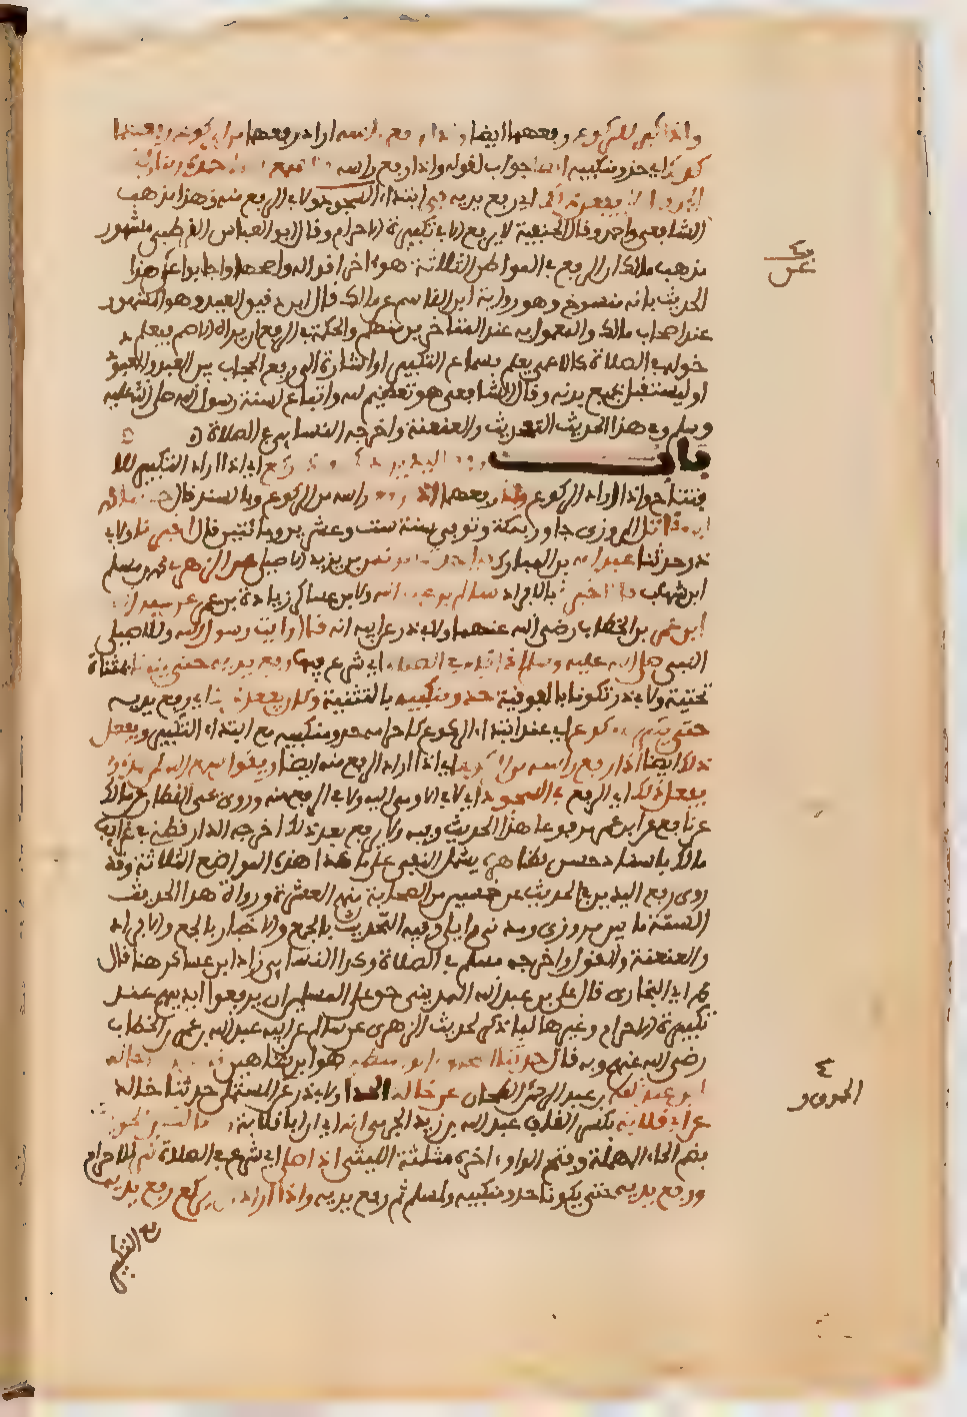 واذا كبر للركوع رفعهما ايضا واذا رفع راسه اراد رفعهما من الركوع رفعهما
كذلك اي حذو منكبيه جواب لقوله واذا رفع راسه
لا يفعل ذلك اي رفع يديه في ابتداء السجود ولا في الرفع منه وهذا مذهب
الشافعي واحمد وقال الحنفية لا يرفع الا في تكبيرة الاحرام وقال ابو العباس القرطبي مشهور
مذهب مالك ان الرفع في المواطن الثلاثة هو اخر اقواله واصحها واجابوا عن هذا
الحديث بانه منسوخ وهو رواية ابن القاسم عن مالك قال ابن دقيق العيد وهو المشهور
عند اصحاب مالك والمعمول به عند المتاخرين منهم والحكمة في الرفع ان يراه الاصم فيعلم د
خوله في الصلاة كالاعمى يعلم بسماع التكبير او اشارة الى رفع الحجاب بين العبد والمعبود
او ليستقبل بجميع بدنه وقال الشافعي هو تعظيم لله واتباع لسنة رسول الله صلى الله عليه
وسلم وفي هذا الحديث التحديث والعنعنة واخرجه النساءي في الصلاة
باب رفع اليدين اذا كبر واذا ركع اي اذا اراد التكبير للا
فتتاح واذا اراد الركوع واذا رفع راسه من الركوع وبالسند قال
ابن مقاتل المروزي جاور بمكة وتوفي سنة ست وعشرين ومائتين قال اخبرنا ولابي
ذر حدثنا عبد الله بن المبارك يونس بن يزيد الايلي عن الزهري محمد بن مسلم
ابن شهاب قال اخبرني بالافراد سالم بن عبد الله ولابن عساكر زيادة ابن عمر عن عبد الله
ابن عمر بن الخطاب رضي الله عنهما ولابي ذر عن ابيه انه قال رايت رسول الله وللاصيلي
النبي صلى الله عليه وسلم اذا قام في الصلاة اي شرع فيها رفع يديه حتى يكونا بمثناة
تحتية ولابي ذر تكونا بالفوقية حذو منكبيه بالتثنية وكان يفعل ذلك اي رفع يديه
حين يكبر للركوع اي عند ابتداء الركوع كاحرامه حذو منكبيه مع ابتداء التكبير ويفعل
ذلك ايضا اذا رفع راسه من الركوع اي اذا اراد الرفع منه ايضا ويقول سمع الله لمن حمده ولا
يفعل ذلك اي الرفع في السجود اي لا في الهوي اليه ولا في الرفع منه وروى يحيى القطان عن مالك
عن نافع عن ابن عمر مرفوعا هذا الحديث وفيه ولا يرفع بعد ذلك اخرجه الدارقطني في غرائب
مالك باسناد حسن وظاهره يشمل النفي عما عدا هذه المواضع الثلاثة وقد
روى رفع اليدين في الحديث عن خمسين من الصحابة منهم العشرة ورواة هذا الحديث
الستة ما بين مروزي ومدني وايلي وفيه التحديث بالجمع والاخبار بالجمع والافراد
والعنعنة والقول واخرجه مسلم في الصلاة وكذا النساءي زاد ابن عساكر هنا قال
محمد اي البخاري قال علي بن عبد الله المديني حق على المسلمين ان يرفعوا ايديهم عند
تكبيرة الاحرام وغيرها لما ذكر لحديث الزهري عن سالم عن ابيه عبد الله بن عمر بن الخطاب
رضي الله عنهم وبه قال حدثنا هو ابن شاهين
ابن عبد الله بن عبد الرحمن الطحان عن خالد الحذا ولابي ذر عن المستملي حدثنا خالد
عن ابي قلابة بكسر القاف عبد الله بن زيد الجرمي انه راى ابا قلابة مالك بن الحويرث
بضم الحاء المهملة وفتح الواو اخره مثلثة الليثي اذا صلى اي شرع في الصلاة كبر للاحرام
ورفع يديه حتى يكونا حذو منكبيه ولمسلم ثم رفع يديه واذا اراد ان يركع رفع يديه
مع التكبير